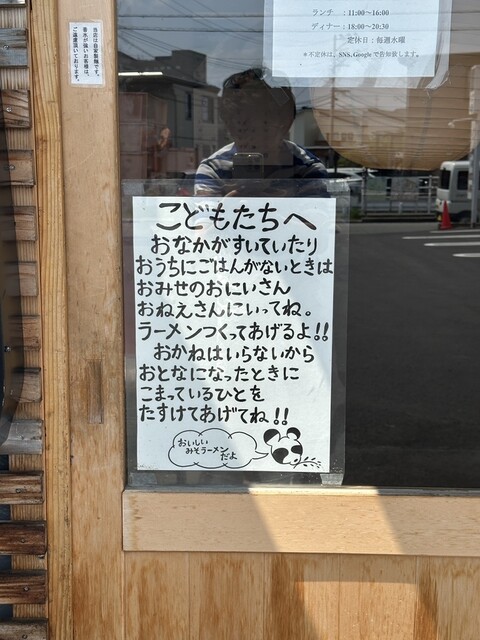 ランチ : 11:00〜16:00
ディナー : 18:00〜20:30
定休日 : 毎週水曜
＊不定休は、SNS, Googleで告知致します。
当店は自家製麺です。
香水が強いお客様は、
ご遠慮頂いております。
こどもたちへ
おなかがすいていたり
おうちにごはんがないときは
おみせのおにいさん
おねえさんにいってね。
ラーメンつくってあげるよ!!
おかねはいらないから
おとなになったときに
こまっているひとを
たすけてあげてね!!
おいしい
みそラーメン
だよ